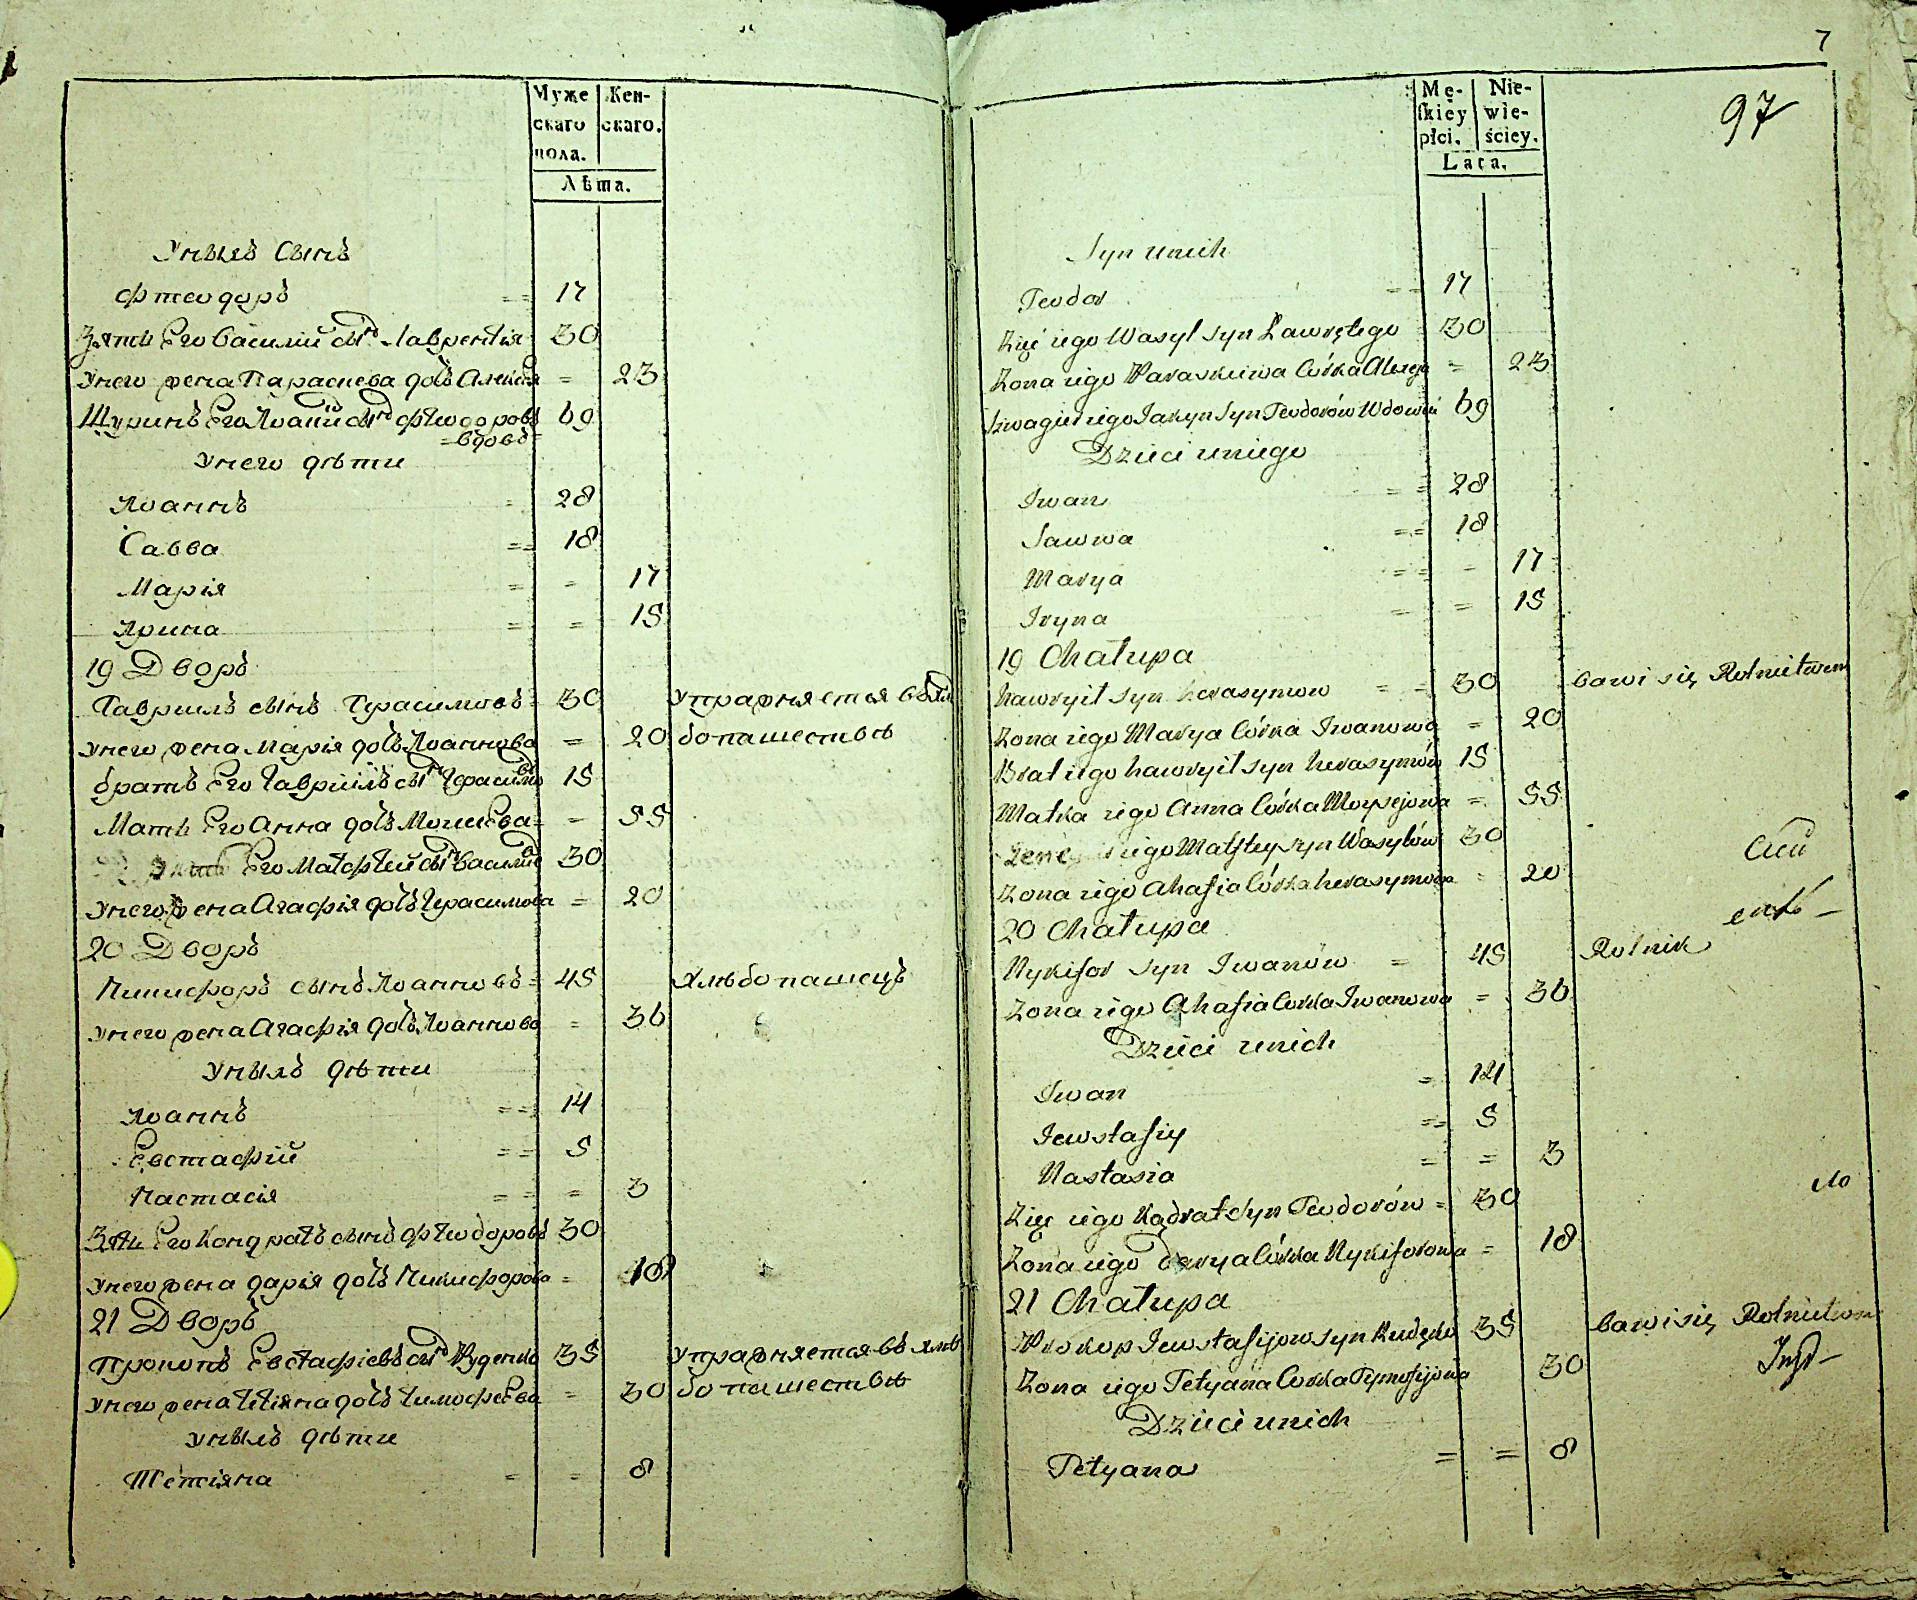 Муже Жен-
скаго скаго.
пола.
Лѣта.
Унихъ Сынъ
Фтеодоръ == 17
Зять Его Василий сынъ Лаврентія 30
Унего жена Параскева дочь Алексія = 23
Щуринъ Его Іоаннъ сынъ Фтеодоровъ 69
=вдовъ=
Унего дѣти
Іоаннъ = 28
Савва == 18
Марія = = 17
Ирина = = 15
19 Дворъ
Гавриилъ сынъ Герасимовъ = 30 упражняется въ хлѣ
Унего жена Марія дочь Іоаннова = 20 бопашествѣ
братъ Его Гавриилъ сынъ Герасимовъ 15
Мать Его Анна дочь Мошеева = 55
Его Матфтей сынъ Василіевъ 30
Унего жена Агафія дочь Герасимова = 20
20 Дворъ
Никифоръ сынъ Іоанновъ = 45 Хлѣбопашецъ
Унего жена Агафія дочь Іоаннова = 36
Унихъ дѣти
Іоаннъ == 14
Евстафий == 5
Настасія == = 3
Зять Его Кондратъ сынъ Фтеодоровъ 30
Унего жена Дарія дочь Никифорова = 18
21 Дворъ
Прокопъ Евстафіевъ сынъ Руденко 35 упражняется въ хлѣ
Унего жена Тетіяна дочь Тимофеева = 30 бопашествѣ
Унихъ дѣти
Тетіяна = = 8
7
97
Mę- Nie-
skiey wie-
płci. ściey.
Lata.
Syn unich
Teodor == 17
Zięć iego Wasyl syn Ławrętego 30
Zona iego Paraskiewa Córka = 23
Szwagier iego syn Teodorów Wdowiec 69
Dzieci uniego
Iwan == 28
Sawwa == 18
Marya == = 17
Iryna = = 15
19 Chałupa
Hawryił syn Herasymow == 30 bawi się Rolnictwem
Zona iego Marya Córka Iwanowa = 20
Brat iego Hawryił syn Herasymów 15
Matka iego Anna Córka Moysejowa = 55
iego Matftey syn Wasylów 30
Zona iego Ahafia Córka Herasymowa = 20
20 Chałupa
Nykifor syn Iwanów = 45 Rolnik
Zona iego Ahafia Corka Iwanowa = 36
Dzieci unich
Iwan = 14
Iewstafiy == 5
Nastasia = = 3
Zięć iego Kądrat syn Teodorów = 30
Zona iego Darya Córka Nykiforowa = 18
21 Chałupa
Prokop Iewstafijow syn Rudęko 35 bawi się Rolnictwem
Zona iego Tetyana Corka Tymofijowa 30
Dzieci unich
Tetyana = = 8